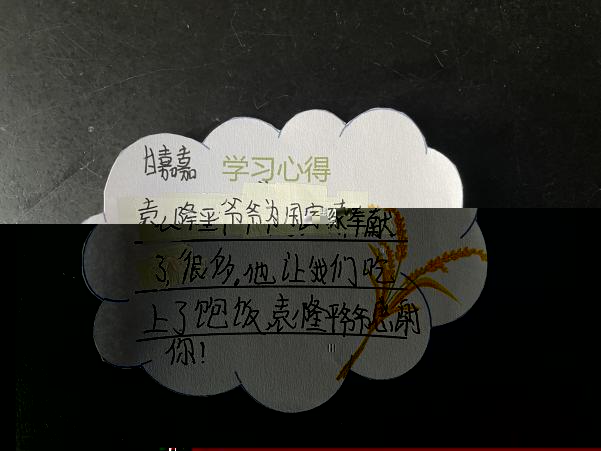 甘嘉嘉 学习心得
袁隆平爷爷为国家奉献
了很多,他让我们吃
上了饱饭,袁隆平爷爷感谢
你!